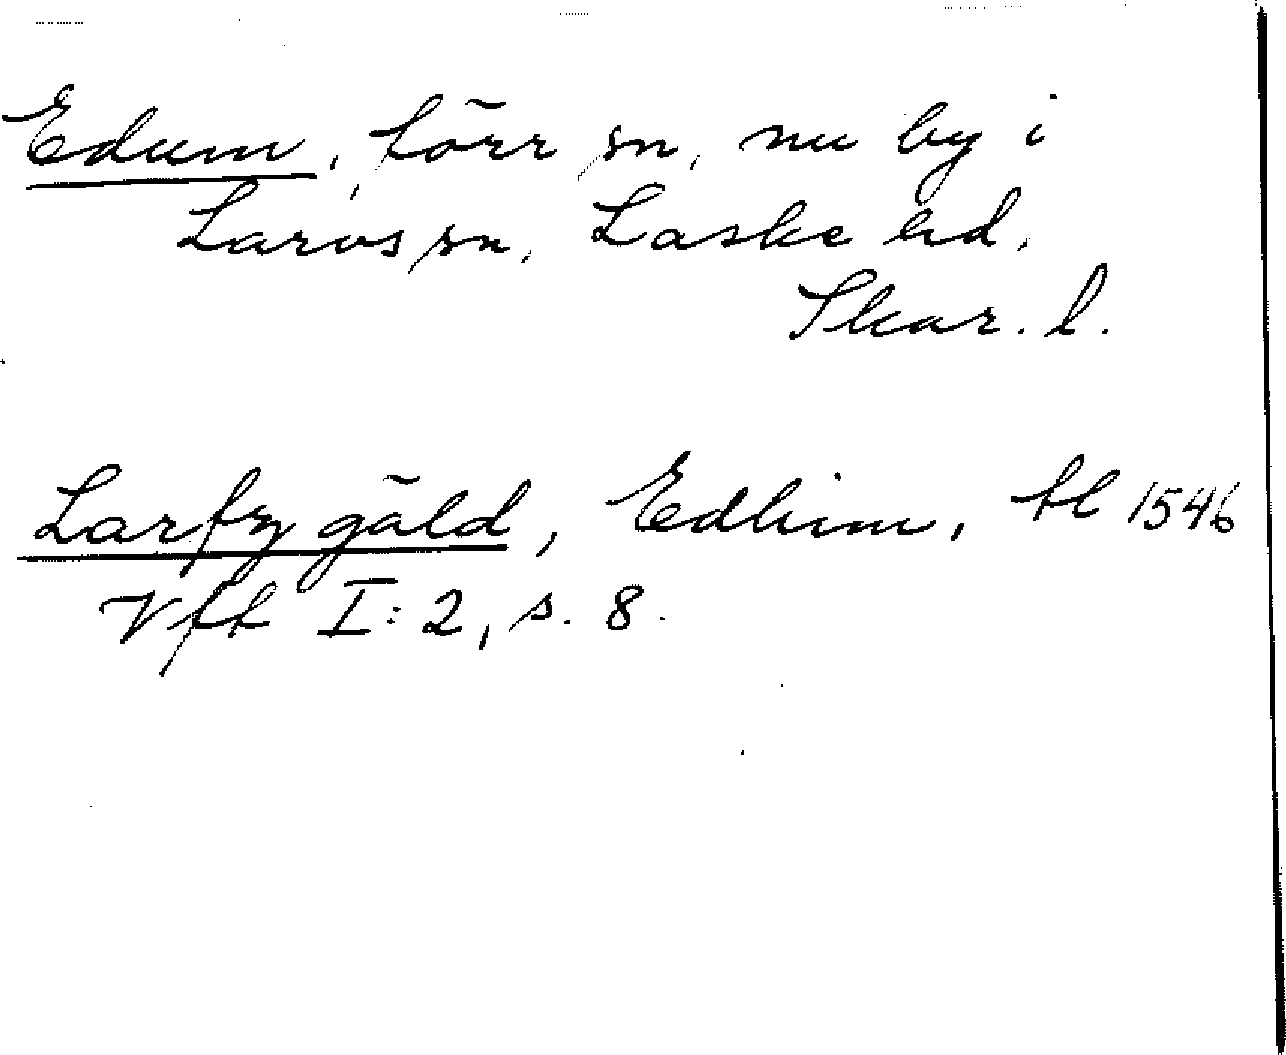 Edum, förr sn, nu by i
Larvs sn, Laske hd,
Skar. l.
Larfz gäld, Edhim, tl 1546
Vft I: 2, s. 8.